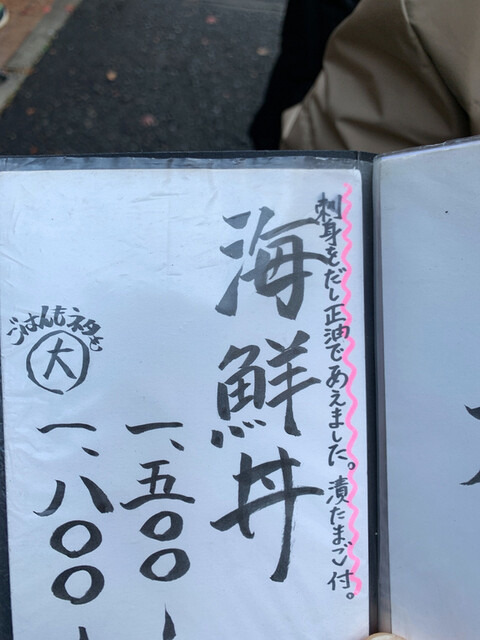 刺身をだし正油であえました。漬たまご付。
海鮮丼
一、五〇〇
ごはんもネタも
大
一、八〇〇